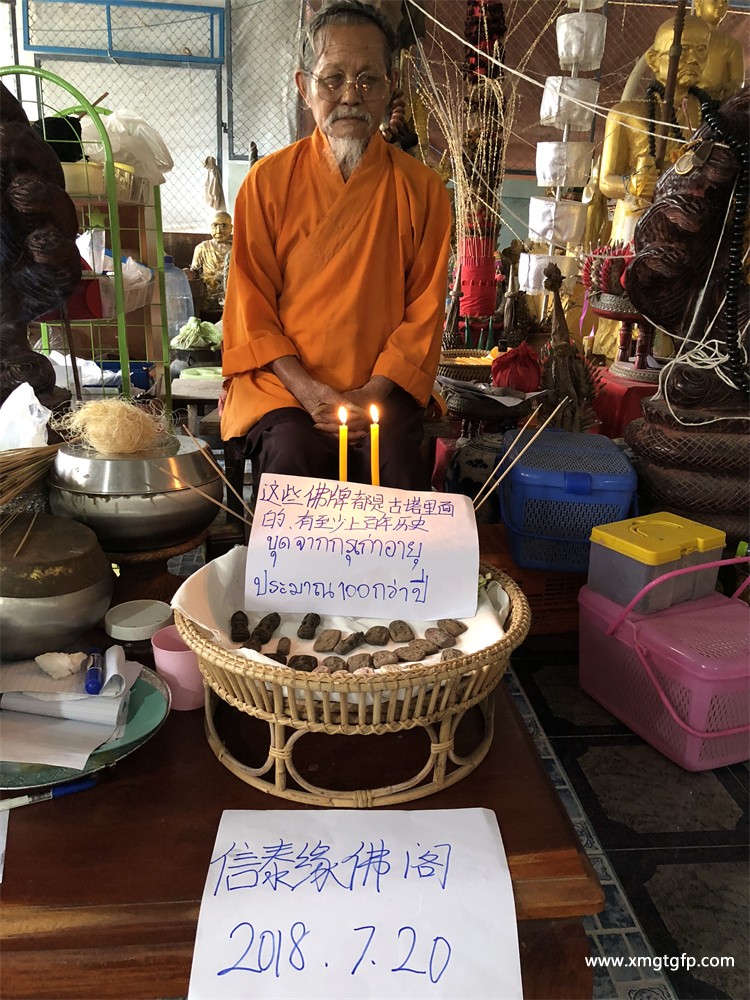 这些佛牌都是古塔里面
的、有至少上百年历史
ขุดจากกรุเก่าอายุ
ประมาณ 100 กว่าปี
信泰缘佛阁
2018.7.20
www.xmgtgfp.com